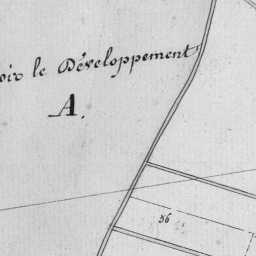 le Développement
A.
56